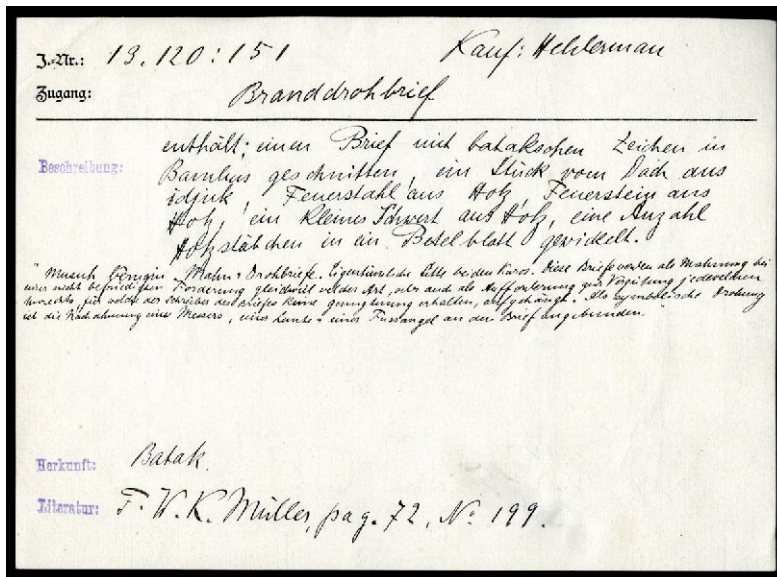 J.-Nr.: 13.120:151 Kauf: Hehlerman
Zugang: Branddrohbrief
Beschreibung: enthält; einen Brief mit batakschen Zeichen in
Bambus geschnitten, ein Stück vom Dach aus
idjuk, Feuerstahl aus Holz, Feuerstein aus
Holz, ein kleines Schwert aus Holz, eine Anzahl
Holzstäbchen in ein Betelblatt gewickelt.
"Musuh Mahn- Drohbriefe. Eigentümliche Sitte bei den Karos. Diese Briefe werden als Mahnung bei
einer nicht befriedigten Forderung gleichviel welcher Art, oder auch als Aufforderung zur Vergütung jedwelchen
Unrechts, für welche der Schreiber des Briefes keine genugtuung erhalten, aufgehängt. Als symbolische Drohung
ist die Nachahmung eines Messers, einer Lunte, einer Fussangel an den Brief angebunden.
Herkunft: Batak.
Literatur: F. W. K. Müller, pag. 72, No. 199.